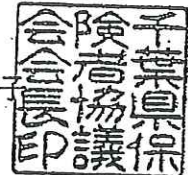 千葉県保
険者協議
会会長印
子